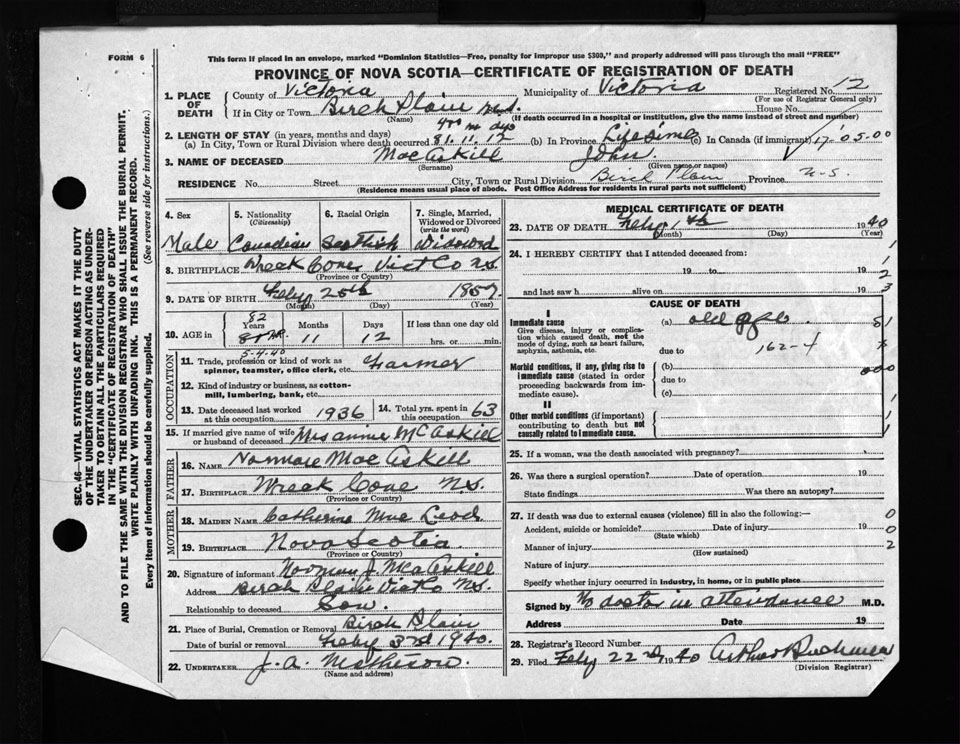 FORM 6
This form if placed in an envelope, marked "Dominion Statistics—Free, penalty for improper use $300," and properly addressed will pass through the mail "FREE"
PROVINCE OF NOVA SCOTIA—CERTIFICATE OF REGISTRATION OF DEATH
1. PLACE OF DEATH County of Victoria Municipality of Victoria Registered No. 12
(For use of Registrar General only)
If in City or Town Birch Plain N.S. House No.
(Name) (If death occurred in a hospital or institution, give the name instead of street and number)
2. LENGTH OF STAY (in years, months and days) yrs m dys
(a) In City, Town or Rural Division where death occurred 81. 11. 12 (b) In Province Lifetime (c) In Canada (if immigrant) 17-05-00
3. NAME OF DECEASED MacAskill John
(Surname) (Given name or names)
RESIDENCE No. Street City, Town or Rural Division Birch Plain Province N-S.
(Residence means usual place of abode. Post Office Address for residents in rural parts not sufficient)
4. Sex 5. Nationality (Citizenship) 6. Racial Origin 7. Single, Married, Widowed or Divorced (write the word)
Male Canadian Scottish Widowed
8. BIRTHPLACE Wreck Cove Vict Co N.S.
(Province or Country)
9. DATE OF BIRTH Feby 25th 1857
(Month) (Day) (Year)
10. AGE in 82 Years Months Days If less than one day old
11 12 hrs. or min.
5-4-40
OCCUPATION
11. Trade, profession or kind of work as spinner, teamster, office clerk, etc. Farmer
12. Kind of industry or business, as cotton-mill, lumbering, bank, etc.
13. Date deceased last worked at this occupation 1936 14. Total yrs. spent in this occupation 63
15. If married give name of wife or husband of deceased Mrs annie McAskill
FATHER
16. NAME Norman MacAskill
17. BIRTHPLACE Wreck Cove N.S.
(Province or Country)
MOTHER
18. MAIDEN NAME Catherine MacLeod
19. BIRTHPLACE Nova Scotia
(Province or Country)
20. Signature of informant Norman J. McAskill
Address Birch Plain Vict Co N.S.
Relationship to deceased Son.
21. Place of Burial, Cremation or Removal Birch Plain
Date of burial or removal Feby 3rd 1940.
22. UNDERTAKER J. A. Matheson.
(Name and address)
MEDICAL CERTIFICATE OF DEATH
23. DATE OF DEATH Feby 1th 1940
(Month) (Day) (Year)
24. I HEREBY CERTIFY that I attended deceased from:
19 to 19
and last saw h alive on 19
CAUSE OF DEATH
I
Immediate cause (a) old age
Give disease, injury or complication which caused death, not the mode of dying, such as heart failure, asphyxia, asthenia, etc.
due to 162-4
Morbid conditions, if any, giving rise to immediate cause (stated in order proceeding backwards from immediate cause).
(b)
due to
(c)
II
Other morbid conditions (if important) contributing to death but not causally related to immediate cause.
25. If a woman, was the death associated with pregnancy?
26. Was there a surgical operation? Date of operation 19
State findings Was there an autopsy?
27. If death was due to external causes (violence) fill in also the following:—
Accident, suicide or homicide? Date of injury 19
(State which)
Manner of injury
(How sustained)
Nature of injury
Specify whether injury occurred in industry, in home, or in public place
Signed by No doctor in attendance M.D.
Address Date 19
28. Registrar's Record Number
29. Filed Feby 22nd 1940 Arthur Buchanan
(Division Registrar)
SEC. 46—VITAL STATISTICS ACT MAKES IT THE DUTY
OF THE UNDERTAKER OR PERSON ACTING AS UNDER-
TAKER TO OBTAIN ALL THE PARTICULARS REQUIRED
IN THE "CERTIFICATE OF REGISTRATION OF DEATH"
AND TO FILE THE SAME WITH THE DIVISION REGISTRAR WHO SHALL ISSUE THE BURIAL PERMIT.
WRITE PLAINLY WITH UNFADING INK. THIS IS A PERMANENT RECORD.
Every item of information should be carefully supplied. (See reverse side for instructions.)